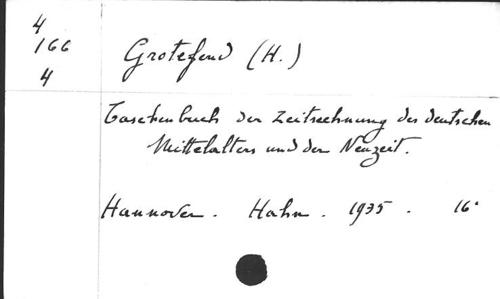 4
166
4
Grotefend (H.)
Taschenbuch der Zeitrechnung des deutschen
Mittelalters und der Neuzeit.
Hannover. Hahn. 1935. 16°